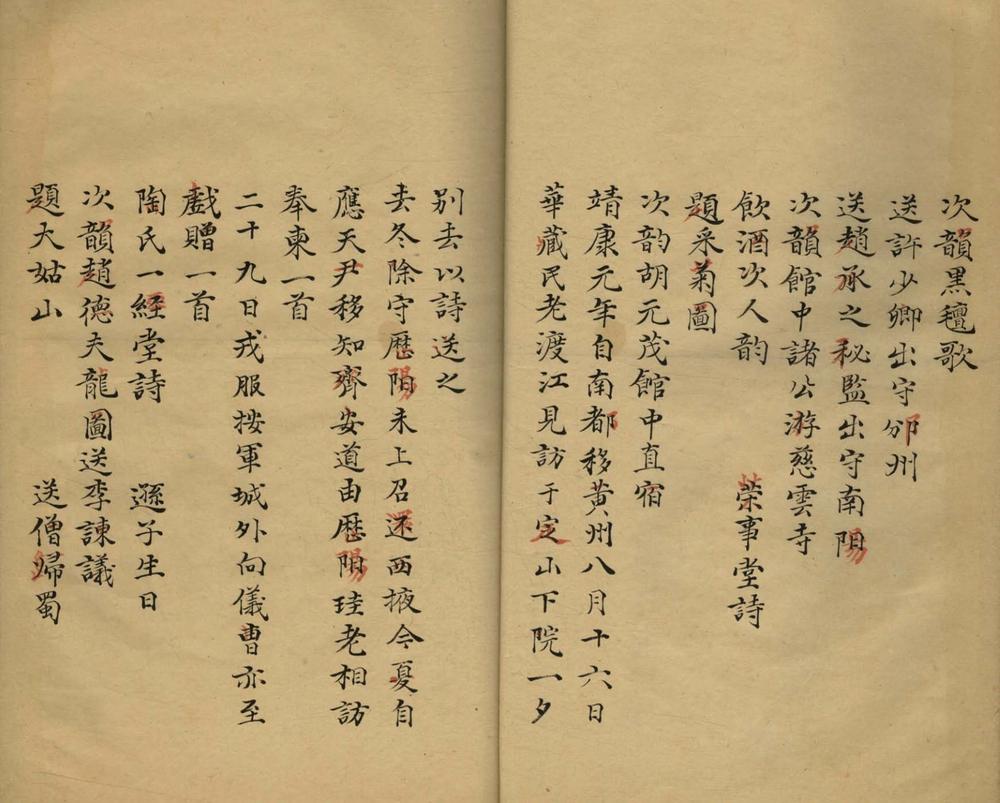 次韻黑氊歌
送許少卿出守邠州
送趙承之秘監出守南陽
次韻館中諸公游慈雲寺
飲酒次人韵 荣事堂詩
題采菊圖
次韵胡元茂館中直宿
靖康元年自南都移黃州八月十六日
華藏民老渡江見訪于定山下院一夕
別去以詩送之
去冬除守歷陽未上召还西掖今夏自
應天尹移知齊安道由歷陽珪老相訪
奉柬一首
二十九日戎服按軍城外向儀曹亦至
戲贈一首
陶氏一経堂詩 遜子生日
次韻趙德夫龍圖送李諫議
題大姑山 送僧歸蜀